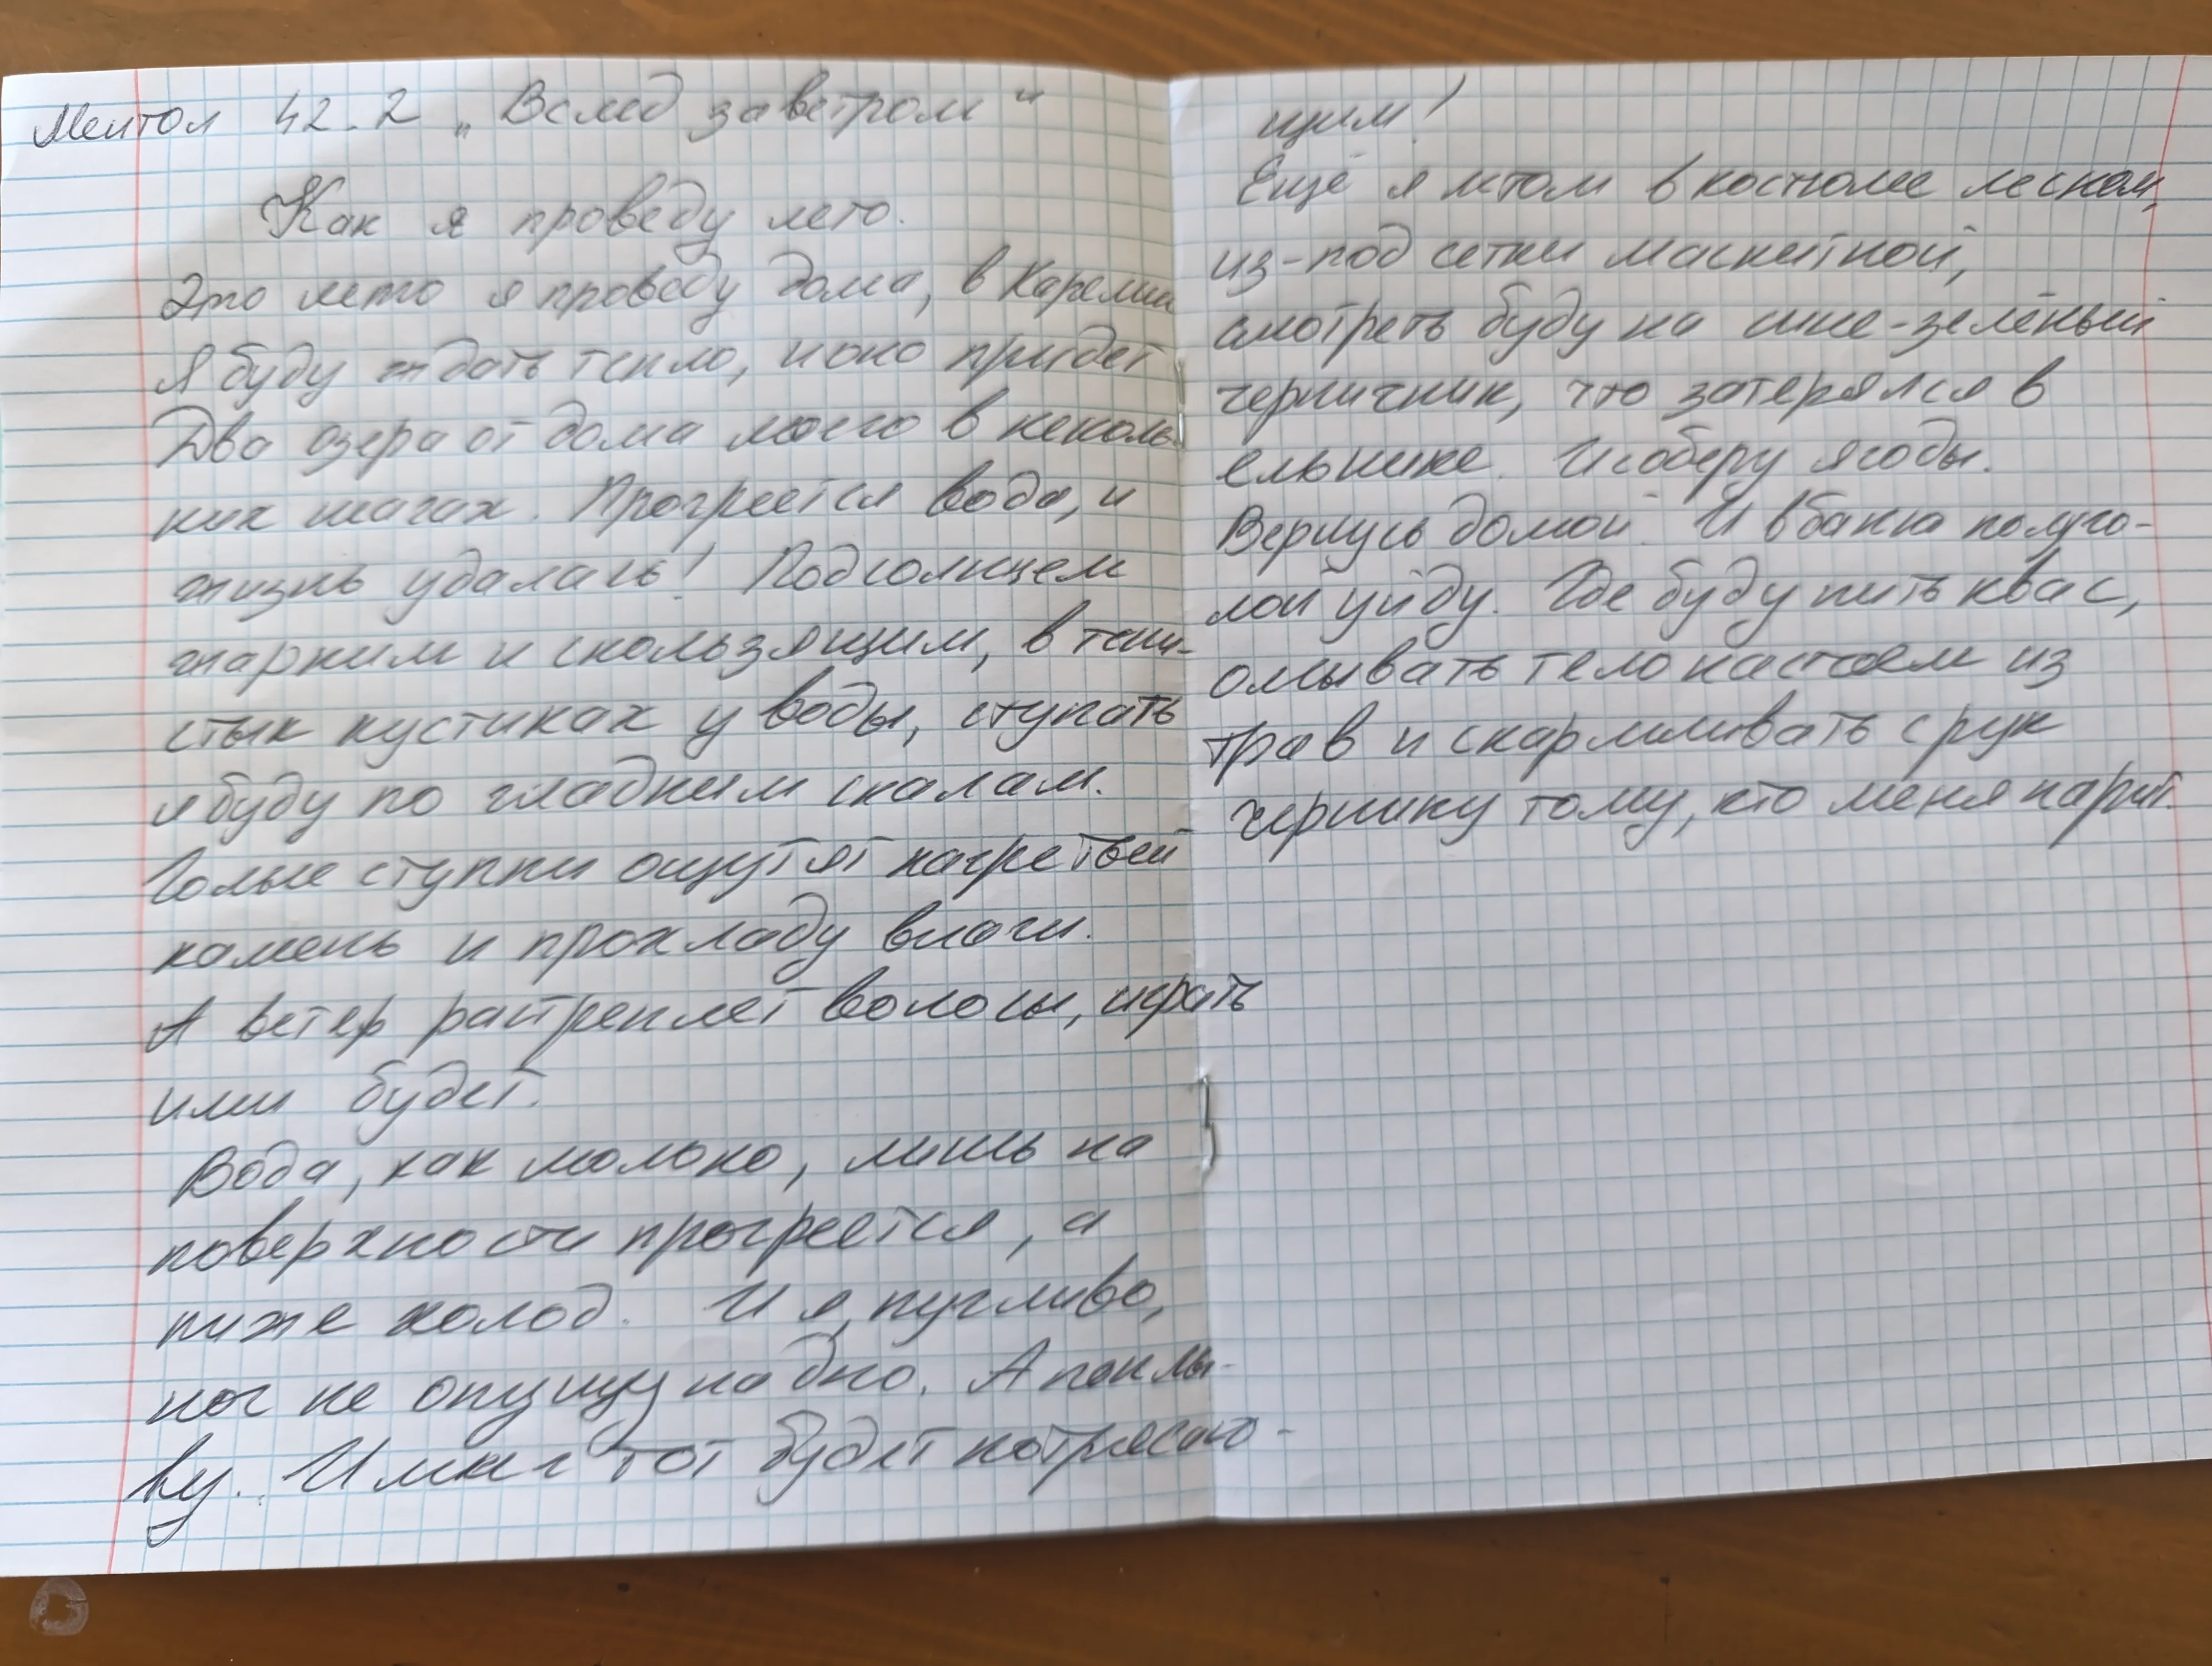 Ментол 42.2 „Вслед за ветром"
Как я проведу лето.
Это лето я проведу дома, в Карелии
Я буду ждать тепло, и оно придет
Два озера от дома моего в неколь-
ких шагах. Прогреется вода, и
жизнь удалась! Под солнцем
жарким и скользящим, в тени-
стых кустиках у воды, ступать
я буду по гладким скалам.
Голые ступни ощутят нагретый
камень и прохладу влаги.
А ветер растреплет волосы, играть
ими будет.
Вода, как молоко, лишь на
поверхности прогреется, а
ниже холод. И я, пугливо,
ног не опущу на дно. А поплы-
ву. И миг тот будет потрясаю-
щим!
Ещё я летом в костюме лесном,
из-под сетки маскитной,
смотреть буду на сине-зелёный
черничник, что затерялся в
ельнике. И соберу ягоды.
Вернусь домой. И в баню полуго-
лой уйду. Где буду пить квас,
омывать тело настоем из
трав и скармливать с рук
чернику тому, кто меня парит.